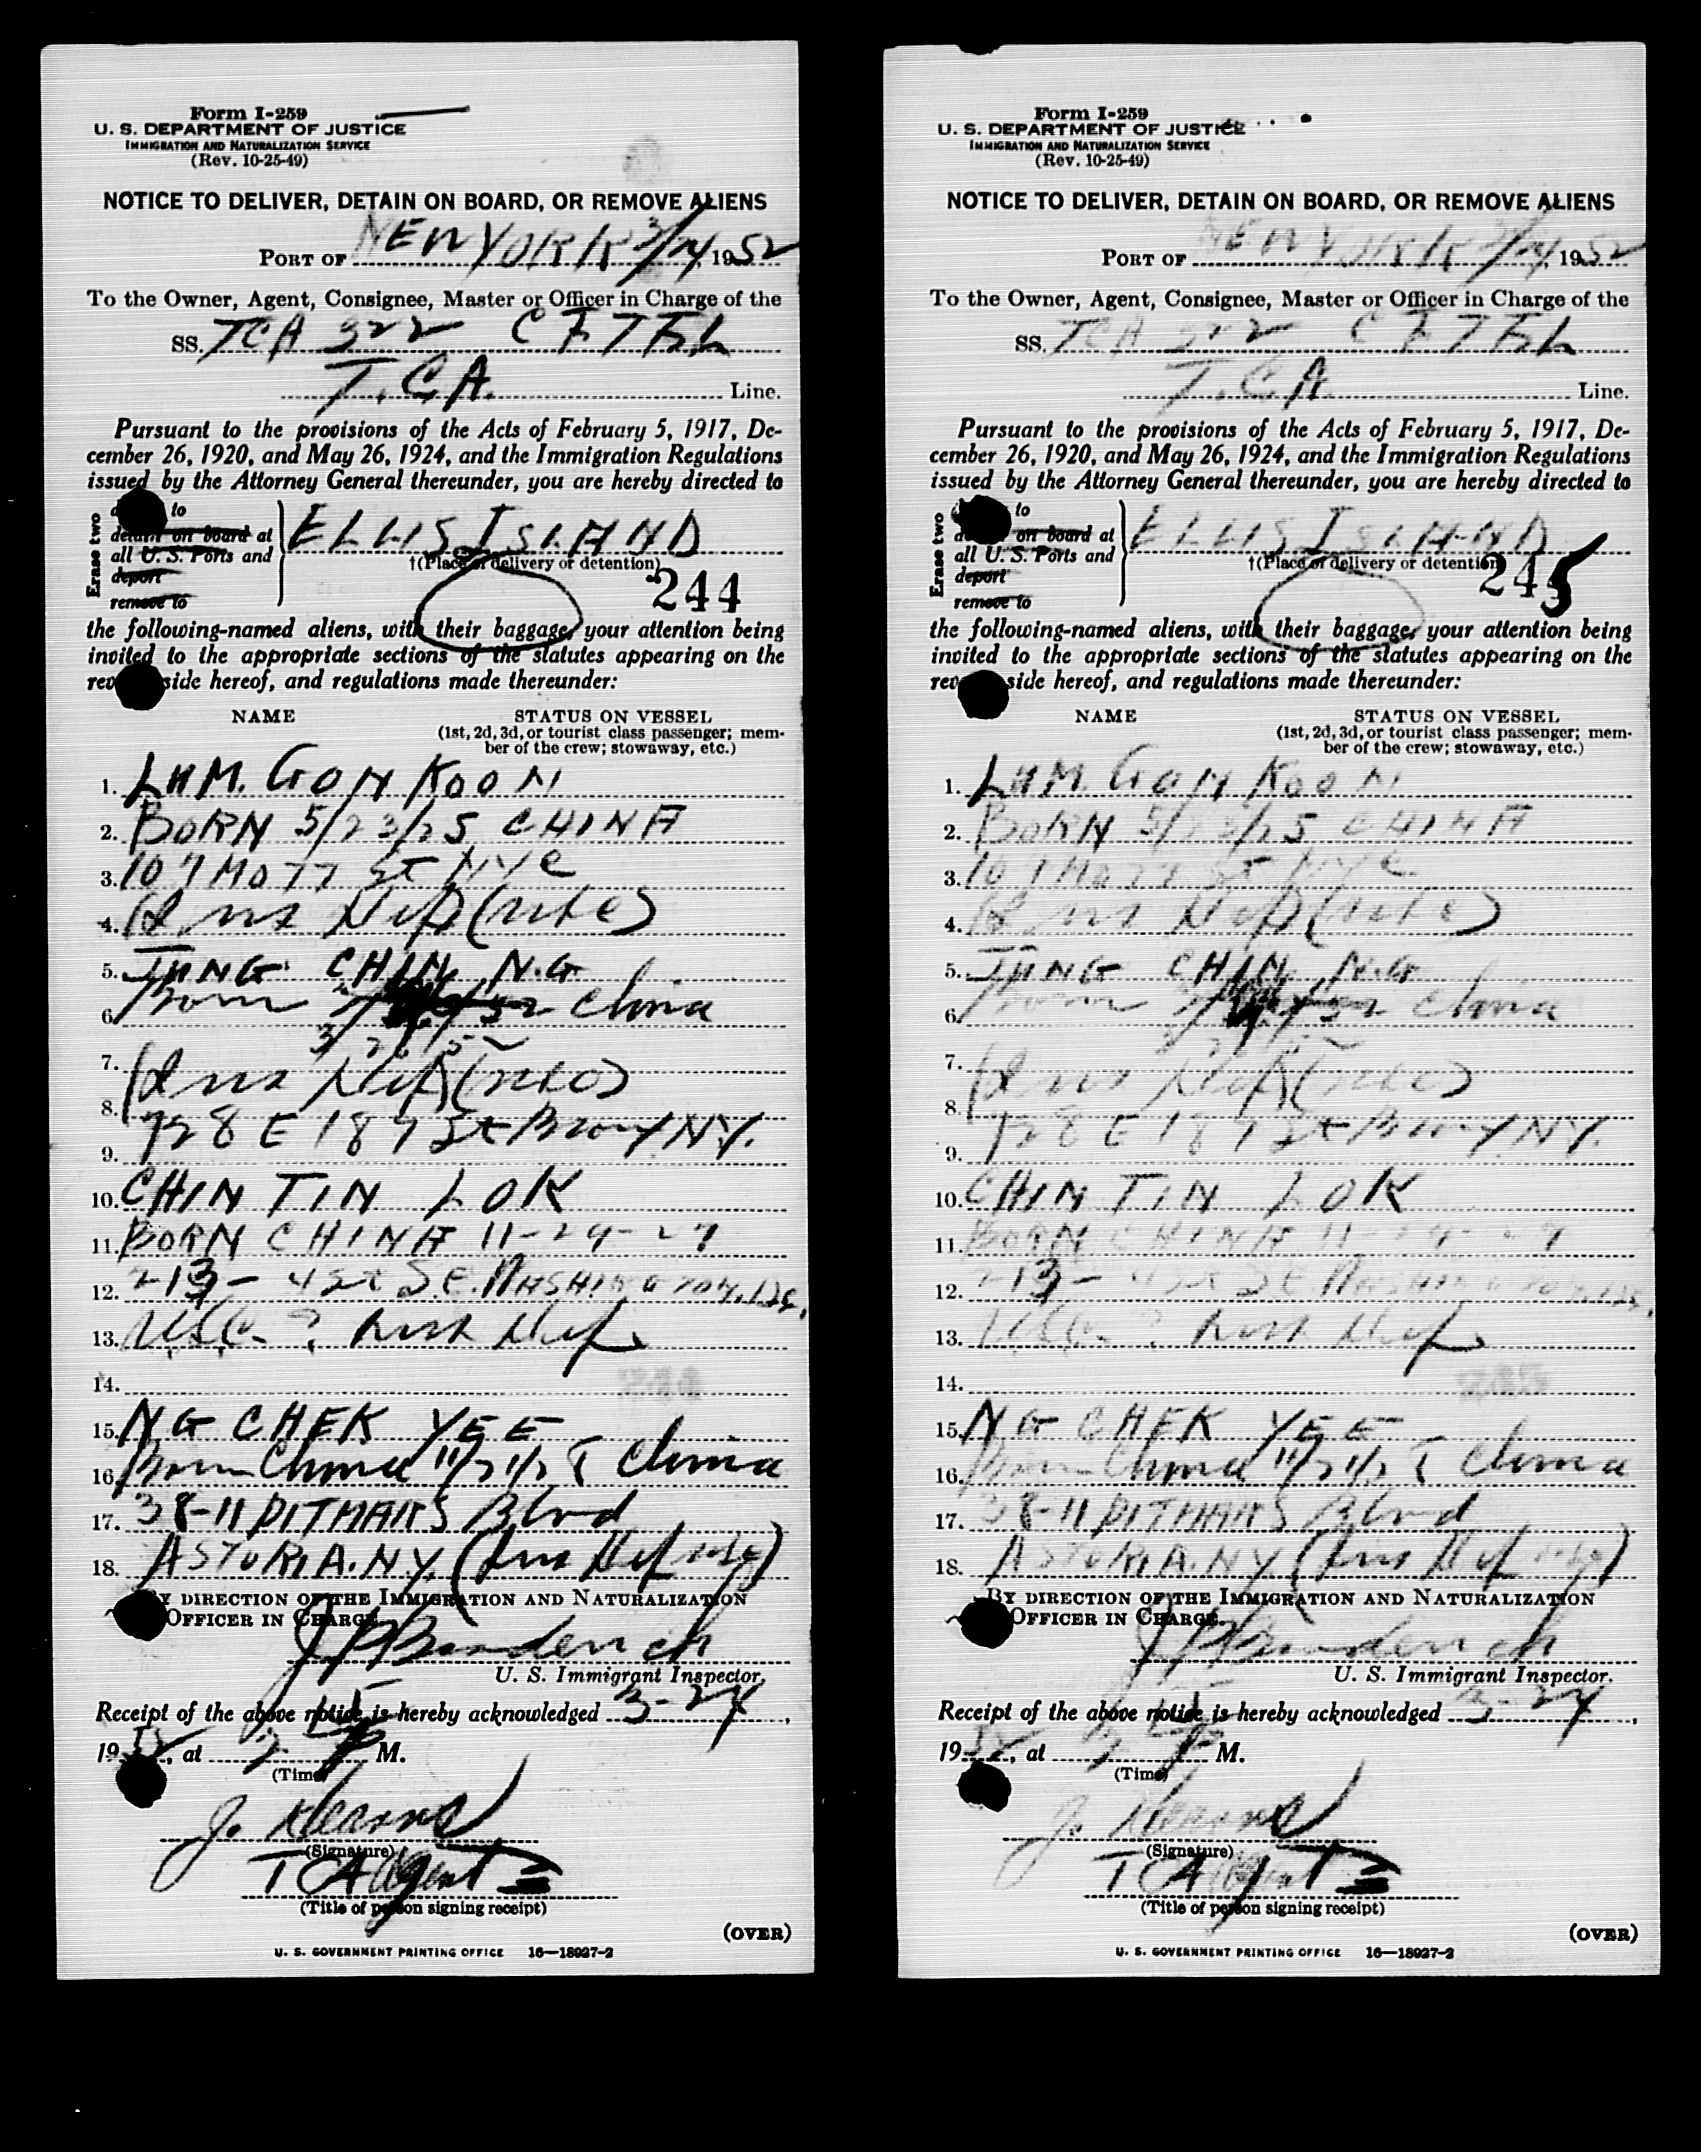 Form I-259
U. S. DEPARTMENT OF JUSTICE
IMMIGRATION AND NATURALIZATION SERVICE
(Rev. 10-25-49)
NOTICE TO DELIVER, DETAIN ON BOARD, OR REMOVE ALIENS
PORT OF NEW YORK 3/24, 1952
To the Owner, Agent, Consignee, Master or Officer in Charge of the
SS. TCA 322 CFTFL
T.C.A. Line.
Pursuant to the provisions of the Acts of February 5, 1917, De-
cember 26, 1920, and May 26, 1924, and the Immigration Regulations
issued by the Attorney General thereunder, you are hereby directed to
Erase two
to
detain on board at
all U. S. Ports and
deport
remove to
ELLIS ISLAND
†(Place of delivery or detention)
244
the following-named aliens, with their baggage, your attention being
invited to the appropriate sections of the statutes appearing on the
side hereof, and regulations made thereunder:
NAME STATUS ON VESSEL
(1st, 2d, 3d, or tourist class passenger; mem-
ber of the crew; stowaway, etc.)
1. LUM. GON KOON
2. BORN 5/23/25 CHINA
3. 107 MOTT St NYC
4.
5. JUNG CHIN N.G
6. Born China
7.
8.
9. 728 E 187 St Bronx NY.
10. CHIN TIN LOK
11. BORN CHINA 11-29-27
12. 213- 4 St S.E. WASHINGTON, DC.
13. U.S.C. ?
14.
15. NG CHEK YEE
16. Born China China
17. 38-11 DITMARS Blvd
18. ASTORIA. N.Y.
BY DIRECTION OF THE IMMIGRATION AND NATURALIZATION
OFFICER IN CHARGE.
U. S. Immigrant Inspector.
Receipt of the above notice is hereby acknowledged 3-24,
1952, at M.
(Time)
J. Kearns
(Signature)
TCA Agent
(Title of person signing receipt)
(OVER)
U. S. GOVERNMENT PRINTING OFFICE 16—18927-2
Form I-259
U. S. DEPARTMENT OF JUSTICE
IMMIGRATION AND NATURALIZATION SERVICE
(Rev. 10-25-49)
NOTICE TO DELIVER, DETAIN ON BOARD, OR REMOVE ALIENS
PORT OF NEW YORK 3/24, 1952
To the Owner, Agent, Consignee, Master or Officer in Charge of the
SS. TCA 322 CFTFL
T.C.A. Line.
Pursuant to the provisions of the Acts of February 5, 1917, De-
cember 26, 1920, and May 26, 1924, and the Immigration Regulations
issued by the Attorney General thereunder, you are hereby directed to
Erase two
to
on board at
all U. S. Ports and
deport
remove to
ELLIS ISLAND
†(Place of delivery or detention)
245
the following-named aliens, with their baggage, your attention being
invited to the appropriate sections of the statutes appearing on the
side hereof, and regulations made thereunder:
NAME STATUS ON VESSEL
(1st, 2d, 3d, or tourist class passenger; mem-
ber of the crew; stowaway, etc.)
1. LUM. GON KOON
2. BORN 5/23/25 CHINA
3. 107 MOTT St NYC
4.
5. JUNG CHIN N.G
6. Born China
7.
8.
9. 728 E 187 St Bronx NY.
10. CHIN TIN LOK
11. BORN CHINA 11-29-27
12. 213- 4 St S.E. WASHINGTON, DC.
13. U.S.C. ?
14.
15. NG CHEK YEE
16. Born China China
17. 38-11 DITMARS Blvd
18. ASTORIA. N.Y.
BY DIRECTION OF THE IMMIGRATION AND NATURALIZATION
OFFICER IN CHARGE.
U. S. Immigrant Inspector.
Receipt of the above notice is hereby acknowledged 3-24,
1952, at M.
(Time)
J. Kearns
(Signature)
TCA Agent
(Title of person signing receipt)
(OVER)
U. S. GOVERNMENT PRINTING OFFICE 16—18927-2